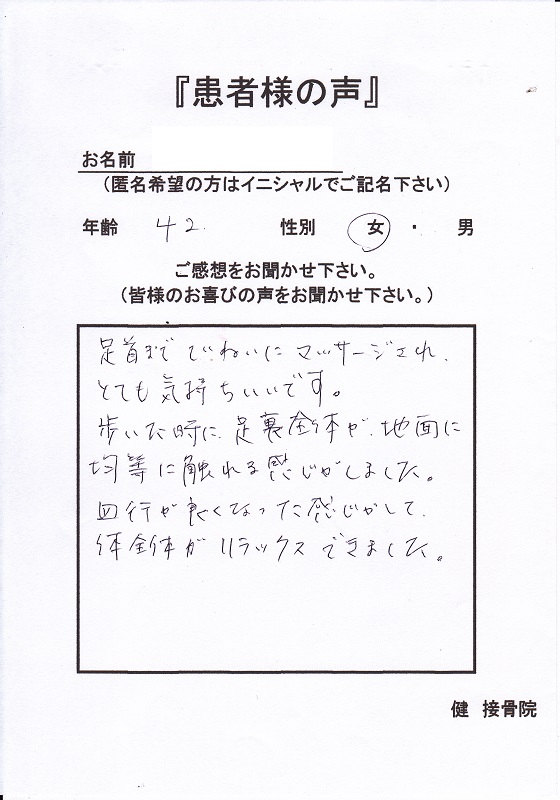 『患者様の声』
お名前
（匿名希望の方はイニシャルでご記名下さい）
年齢 42. 性別 女 ・ 男
ご感想をお聞かせ下さい。
（皆様のお喜びの声をお聞かせ下さい。）
足首まで ていねいに マッサージされ、
とても 気持ちいいです。
歩いた時に、足裏全体が、地面に
均等に触れる感じがしました。
血行が良くなった感じがして、
体全体がリラックスできました。
健 接骨院